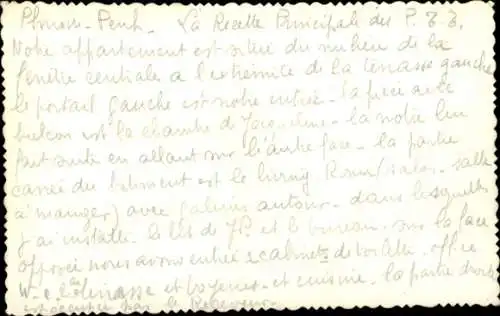 Phnom-Penh. La Recette Principale des P.T.T.
Notre appartement est situé du milieu de la
fenêtre centrale à l'extrémité de la terrasse gauche
le portail gauche est notre entrée. la pièce avec
balcon est la chambre de Jacqueline. la nôtre lui
fait suite en allant sur l'autre face. la partie
carrée du bâtiment est le living Room (salon, salle
à manger) avec galeries autour. dans lesquelles
j'ai installé le lit de JP. et le bureau. sur la face
opposée nous avons entrée cabinet de toilette. office
W.c. terrasse et et cuisine. la partie droite
est occupée par le Receveur.